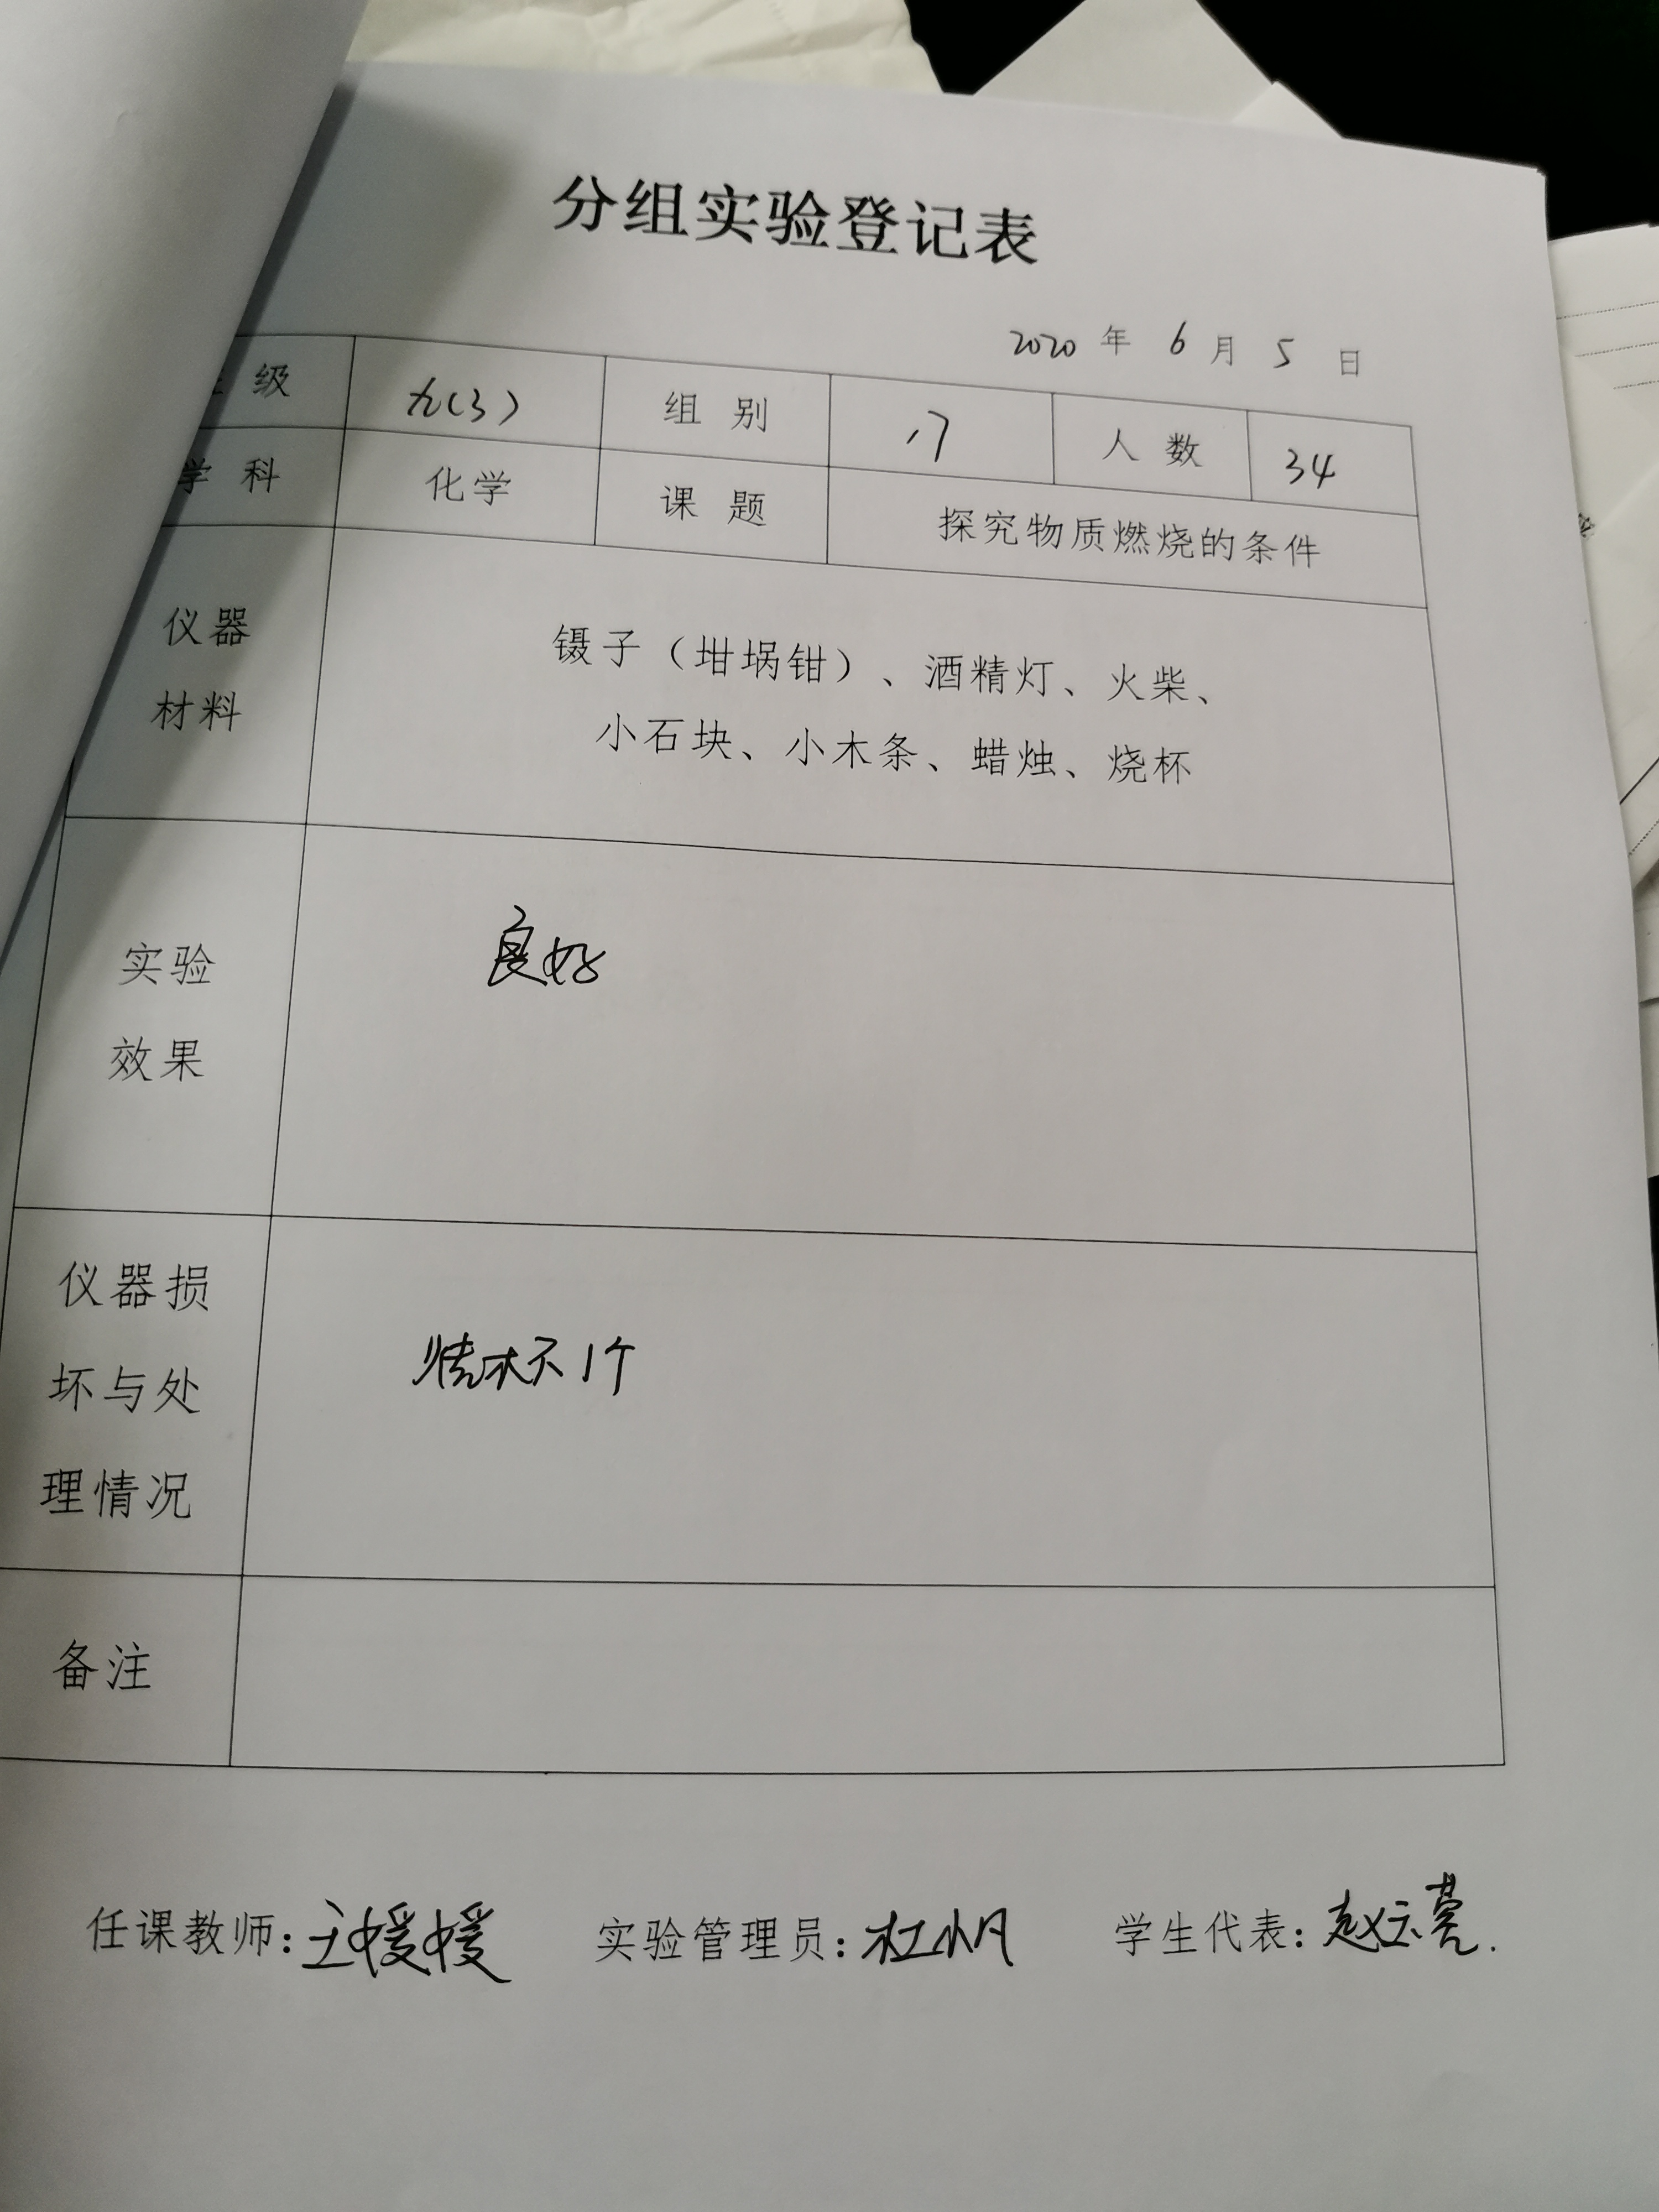 分组实验登记表
2020 年 6 月 5 日
级 九(3) 组别 17 人数 34
学科 化学 课题 探究物质燃烧的条件
仪器
材料
镊子（坩埚钳）、酒精灯、火柴、
小石块、小木条、蜡烛、烧杯
实验
效果
良好
仪器损
坏与处
理情况
烧杯 1个
备注
任课教师:王媛媛 实验管理员:杜小凡 学生代表:赵云亮.